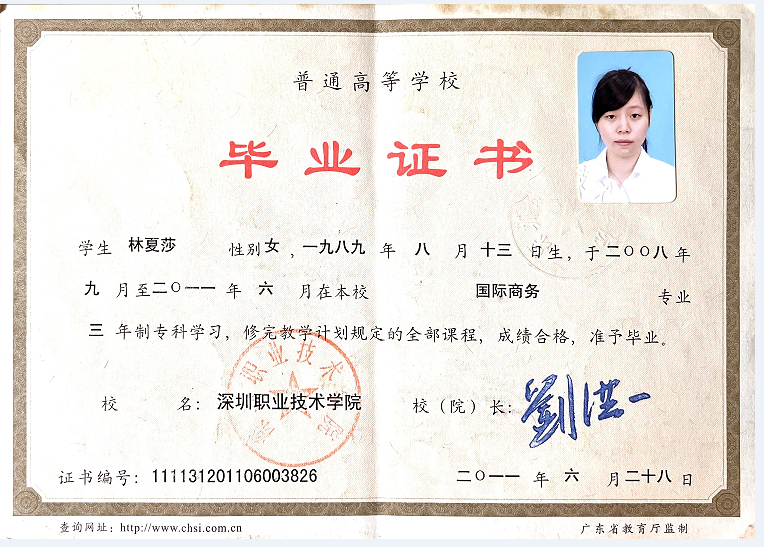 普通高等学校
毕业证书
学生 林夏莎 性别女，一九八九 年 八 月 十三 日生，于二〇〇八年
九 月至二〇一一 年 六 月在本校 国际商务 专业
三 年制专科学习，修完教学计划规定的全部课程，成绩合格，准予毕业。
职业技术
校 名：深圳职业技术学院 校（院）长：劉洪一
证书编号：111131201106003826 二〇一一 年 六 月二十八日
查询网址：http://www.chsi.com.cn 广东省教育厅监制